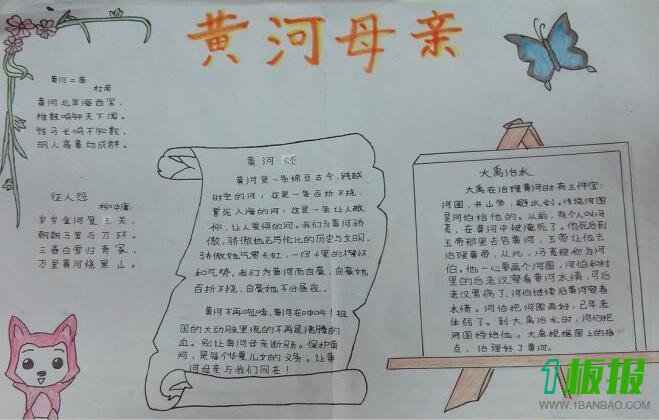 黄河母亲
黄河二首
杜甫
黄河北岸海西军,
椎鼓鸣钟天下闻。
铁马长鸣不知数,
胡人高鼻动成群。
征人怨
柳中庸
岁岁金河复玉关,
朝朝马策与刀环。
三春白雪归青冢,
万里黄河绕黑山。
黄河 颂
黄河是一条绵亘古今,跨越
时空的河;这是一条百折不挠,
奔死入海的河;这是一条让人敬
仰,让人畏惧的河。我们为黄河骄
傲,骄傲她无与伦比的历史与文明,
骄傲她气贯长虹,一归千里的情怀
和气势。我们为黄河而自豪,自豪她
百折不挠,自豪她不分昼夜。
黄河不再咆哮,黄河在呻吟!祖
国的大动脉里流的不再是沸腾的
血。别让黄河母亲断乳。保护黄
河,是每个华夏儿女的义务。让黄
河母亲与我们同在!
大禹治水
大禹在治理黄河时有三件宝:
河图,开山斧,避水剑。传说河图
是河伯给他的。从前,有个人叫冯
夷,在黄河中被淹死了。他死后到
玉帝那里去告黄河,玉帝让他去
治理黄帝,从此,冯夷被称为河
伯。他一心要画个河图,河伯和村
里的后老汉察看黄河水情,可后
老汉累病了,河伯继续沿黄河察看
水情。河伯把河图画好,己年老
体弱了。到大禹治水时,河伯把
河图授给他。大禹根据图上的指
点,治理好了黄河。
1板报
WWW.1BANBAO.COM